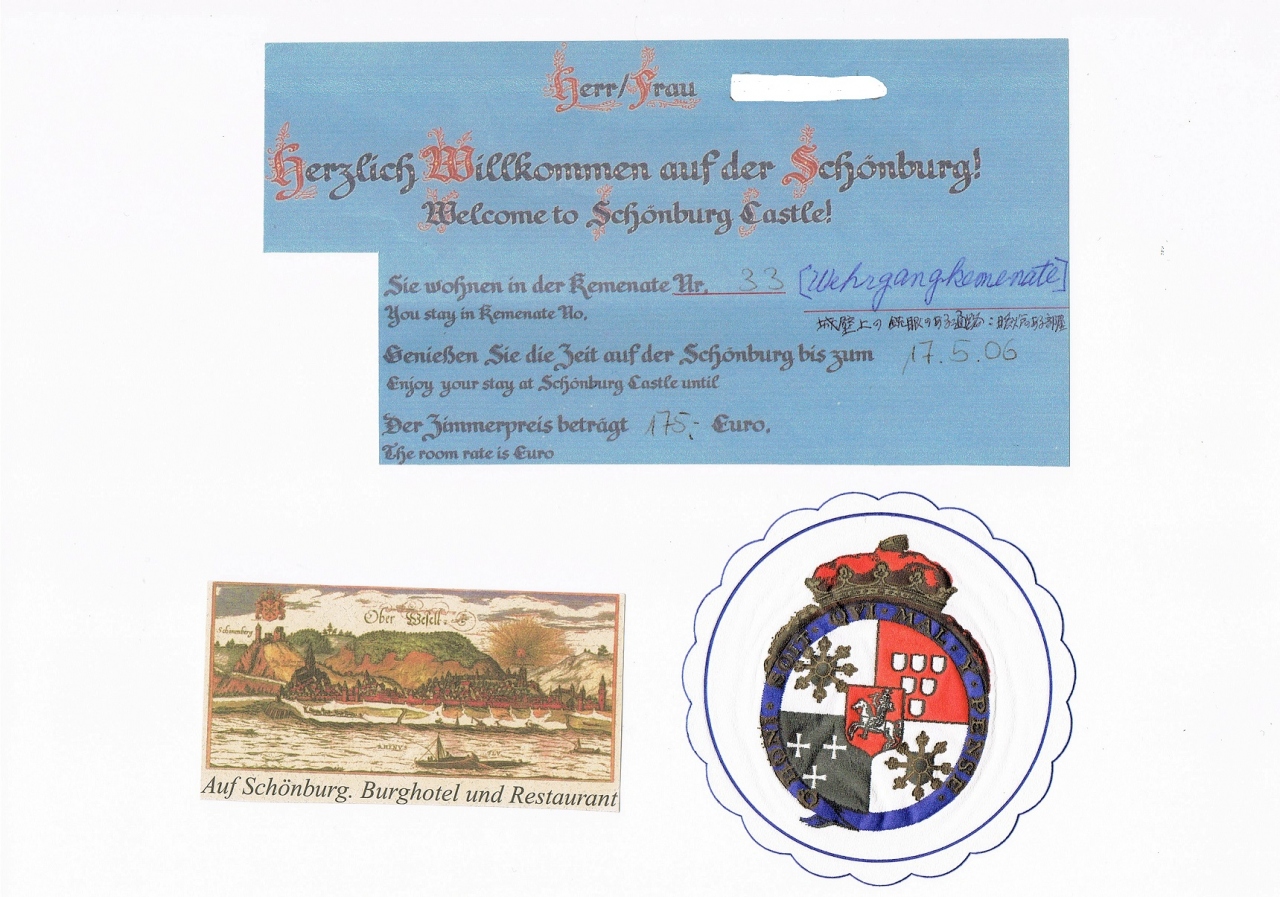 Herr/Frau
Herzlich Willkommen auf der Schönburg!
Welcome to Schönburg Castle!
Sie wohnen in der Kemenate Nr. 33 [Wehrgangkemenate]
You stay in Kemenate No.
城壁上の
Genießen Sie die Zeit auf der Schönburg bis zum 17.5.06
Enjoy your stay at Schönburg Castle until
Der Zimmerpreis beträgt 175,- Euro.
The room rate is Euro
Ober Wesell.
Auf Schönburg. Burghotel und Restaurant
HONI · SOIT · QVI · MAL · Y · PENSE ·